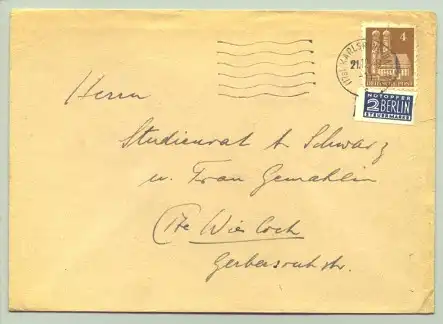 4
KARLSR
21.
DEUTSCHE POST
NOTOPFER
2 BERLIN
STEUERMARKE
Herrn
Studienrat Schwarz
u. Frau Gemahlin
Wiesloch
Gerbersruhstr.